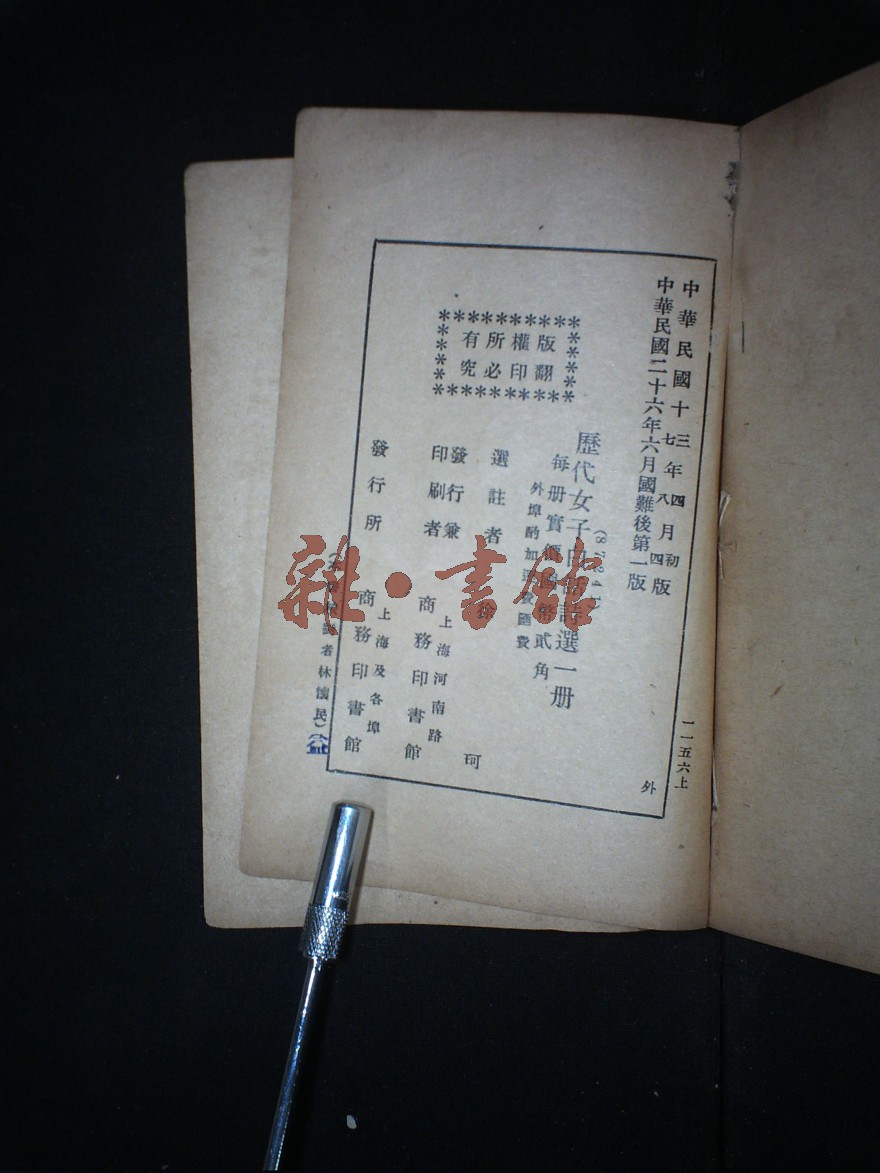 中華民國十三年四月初版
中華民國十七年八月四版
中華民國二十六年六月國難後第一版
歷代女子白話詩選一冊
每冊實價國幣貳角
外埠酌加運費匯費
選註者 徐珂
發行兼印刷者 上海河南路 商務印書館
發行所 上海及各埠 商務印書館
版權所有
翻印必究
一一五六上
外
者林懷民
雜·書館